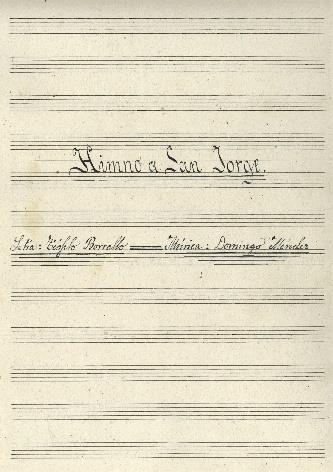 Himno a San Jorge.
Letra: Teófilo Borrallo — Música: Domingo Méndez